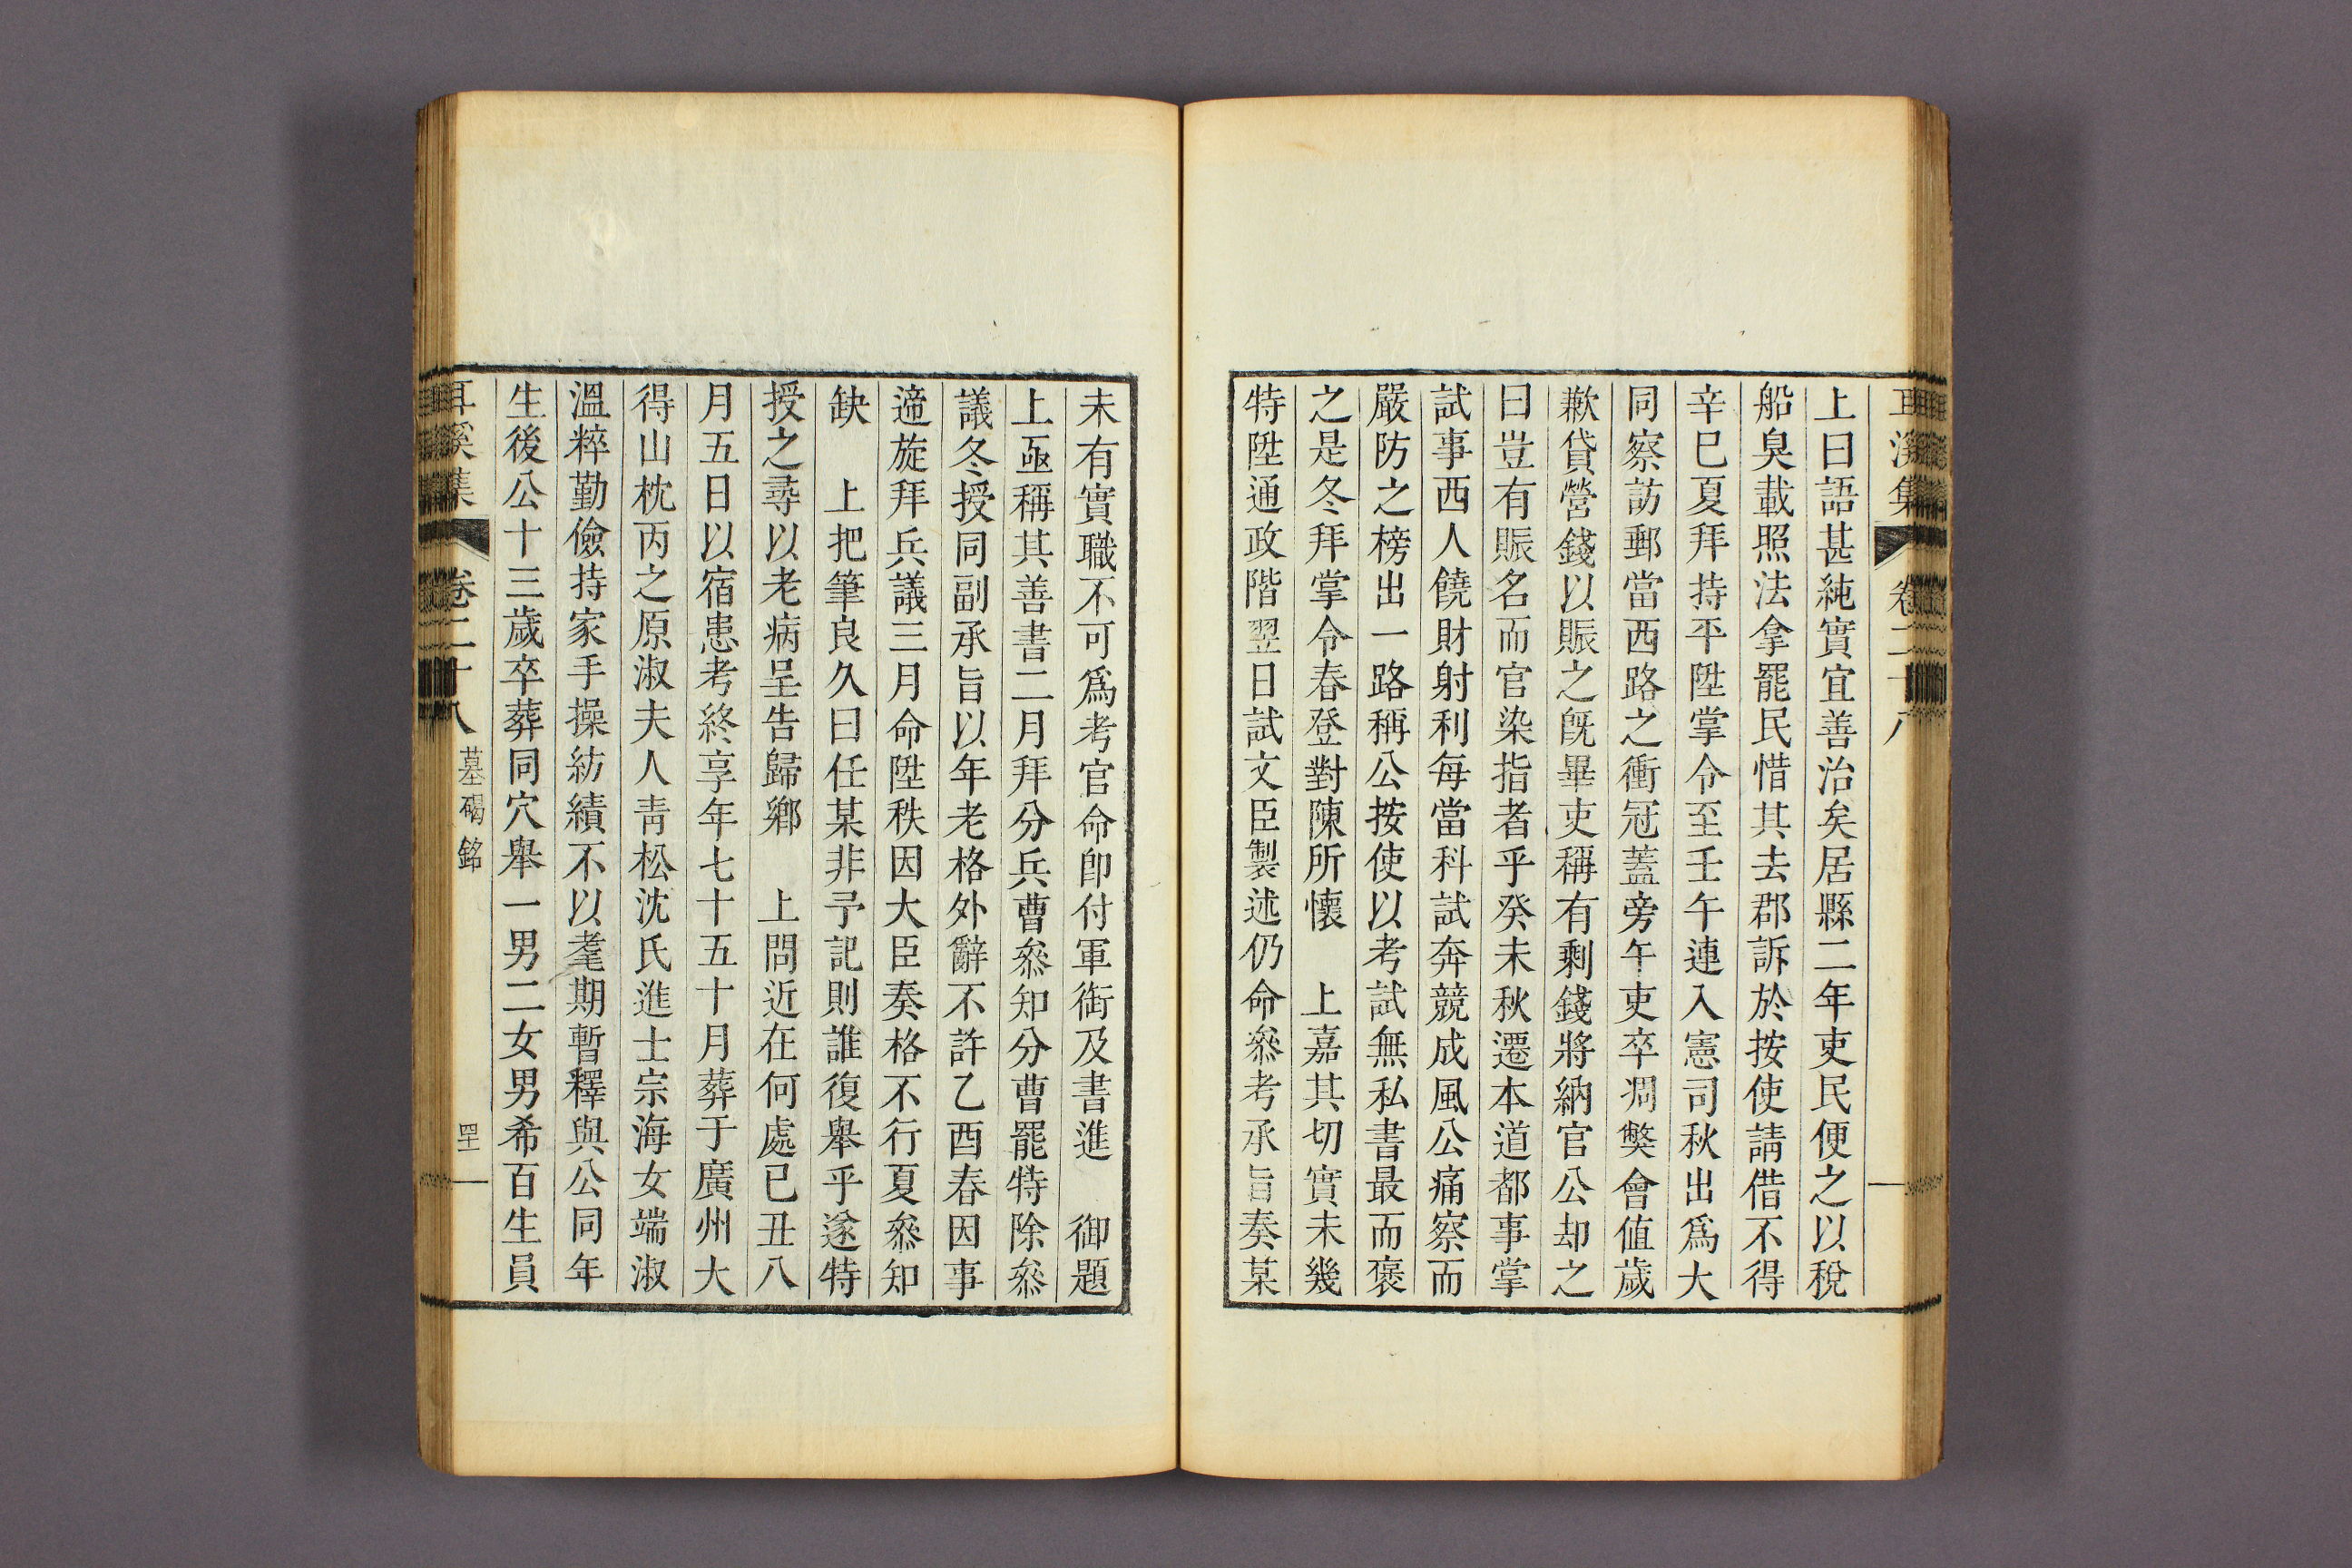 上曰語甚純實宜善治矣居縣二年吏民便之以稅
船臭載照法拿罷民惜其去郡訴於按使請借不得
辛巳夏拜持平陞掌令至壬午連入憲司秋出爲大
同察訪郵當西路之衝冠蓋旁午吏卒凋獘會値歲
歉貸營錢以賑之旣畢吏稱有剩錢將納官公却之
曰豈有賑名而官染指者乎癸未秋遷本道都事掌
試事西人饒財射利每當科試奔競成風公痛察而
嚴防之榜出一路稱公按使以考試無私書最而褒
之是冬拜掌令春登對陳所懷　上嘉其切實未幾
特陞通政階翌日試文臣製述仍命叅考承旨奏某
未有實職不可爲考官命卽付軍銜及書進　御題
上亟稱其善書二月拜分兵曹叅知分曹罷特除叅
議冬授同副承旨以年老格外辭不許乙酉春因事
適旋拜兵議三月命陞秩因大臣奏格不行夏叅知
缺　上把筆良久曰任某非予記則誰復舉乎遂特
授之尋以老病呈告歸鄕　上問近在何處已丑八
月五日以宿患考終享年七十五十月葬于廣州大
得山枕丙之原淑夫人靑松沈氏進士宗海女端淑
溫粹勤儉持家手操紡績不以耄期暫釋與公同年
生後公十三歲卒葬同穴舉一男二女男希百生員
耳溪集　卷二十八　墓碣銘　四十一